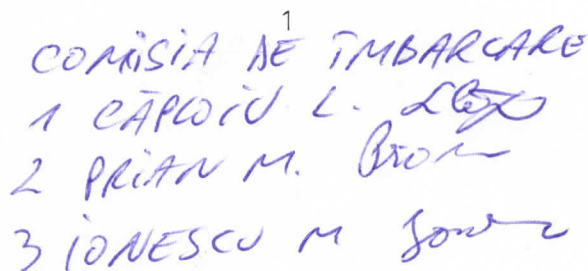 1
COMISIA DE ÎMBARCARE
1 CĂPĂŢOIU L.
2 PRIAN M.
3 IONESCU M